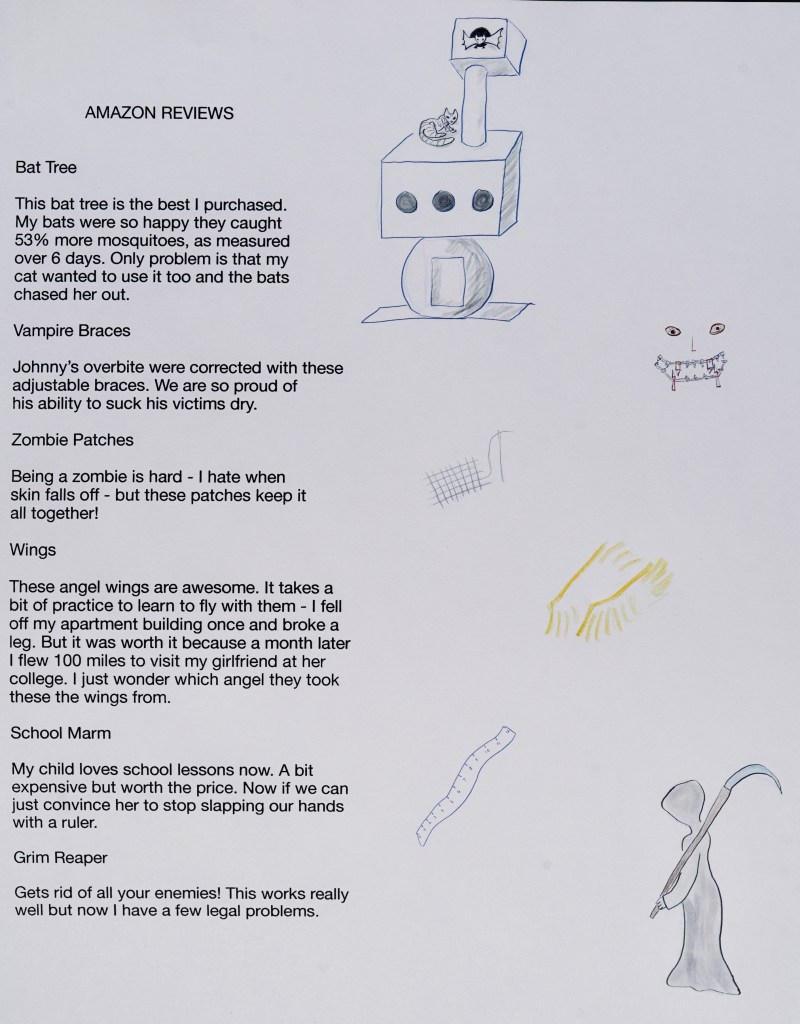 AMAZON REVIEWS
Bat Tree
This bat tree is the best I purchased.
My bats were so happy they caught
53% more mosquitoes, as measured
over 6 days. Only problem is that my
cat wanted to use it too and the bats
chased her out.
Vampire Braces
Johnny's overbite were corrected with these
adjustable braces. We are so proud of
his ability to suck his victims dry.
Zombie Patches
Being a zombie is hard - I hate when
skin falls off - but these patches keep it
all together!
Wings
These angel wings are awesome. It takes a
bit of practice to learn to fly with them - I fell
off my apartment building once and broke a
leg. But it was worth it because a month later
I flew 100 miles to visit my girlfriend at her
college. I just wonder which angel they took
these the wings from.
School Marm
My child loves school lessons now. A bit
expensive but worth the price. Now if we can
just convince her to stop slapping our hands
with a ruler.
Grim Reaper
Gets rid of all your enemies! This works really
well but now I have a few legal problems.